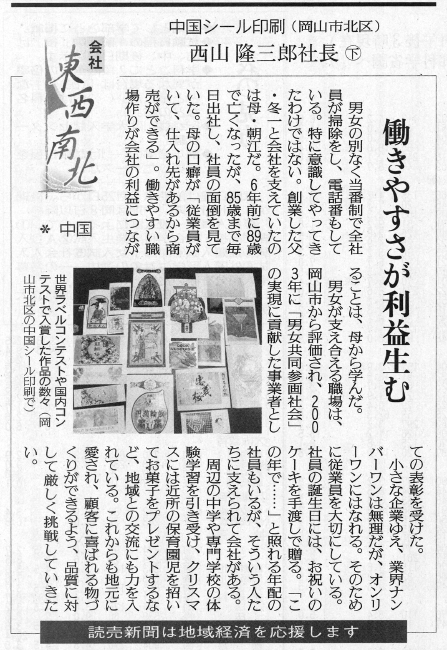 中国シール印刷（岡山市北区）
西山 隆三郎社長 下
会社
東西南北
＊ 中国
働きやすさが利益生む
男女の別なく当番制で全社
員が掃除をし、電話番もして
いる。特に意識してやってき
たわけではない。創業した父
・冬一と会社を支えていたの
は母・朝江だ。6年前に89歳
で亡くなったが、85歳まで毎
日出社し、社員の面倒を見て
いた。母の口癖が「従業員が
いて、仕入れ先があるから商
売ができる」。働きやすい職
場作りが会社の利益につなが
ることは、母から学んだ。
男女が支え合える職場は、
岡山市から評価され、200
3年に「男女共同参画社会」
の実現に貢献した事業者とし
世界ラベルコンテストや国内コン
テストで入賞した作品の数々（岡
山市北区の中国シール印刷で）
ての表彰を受けた。
小さな企業ゆえ、業界ナン
バーワンは無理だが、オンリ
ーワンにはなれる。そのため
に従業員を大切にしている。
社員の誕生日には、お祝いの
ケーキを手渡しで贈る。「こ
の年で……」と照れる年配の
社員もいるが、そういう人た
ちに支えられて会社がある。
周辺の中学や専門学校の体
験学習を引き受け、クリスマ
スには近所の保育園児を招い
てお菓子をプレゼントするな
ど、地域との交流にも力を入
れている。これからも地元に
愛され、顧客に喜ばれる物づ
くりができるよう、品質に対
して厳しく挑戦していきた
い。
読売新聞は地域経済を応援します